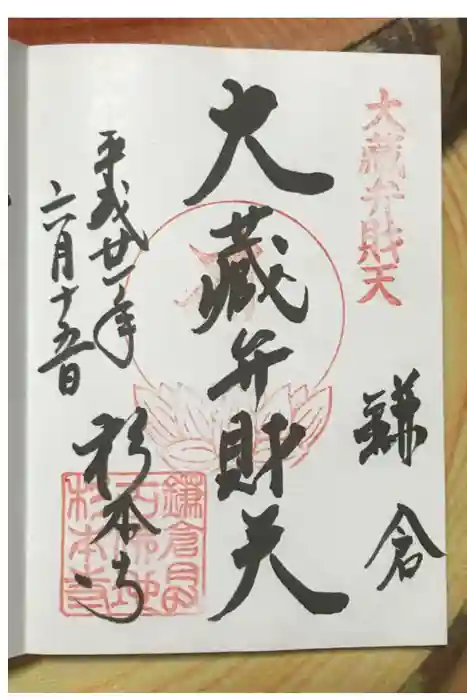 大蔵弁財天
鎌倉
大蔵弁財天
平成廿一年
六月十五日
杉本寺
鎌倉
杉本寺